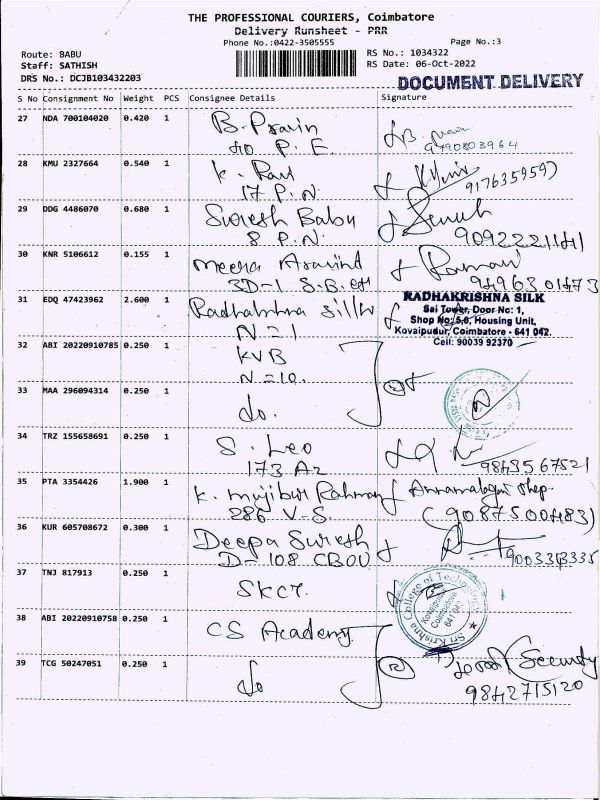 THE PROFESSIONAL COURIERS, Coimbatore
Delivery Runsheet - PRR
Phone No.:0422-3505555
Page No.:3
Route: BABU
RS No.: 1034322
Staff: SATHISH
RS Date: 06-Oct-2022
DRS No.: DCJB103432203
DOCUMENT DELIVERY
S No Consignment No Weight PCS Consignee Details Signature
27 NDA 700104020 0.420 1 B. Pravin
40 P. F.
9790803964
28 KMU 2327664 0.540 1 K. Ravi
17 P.N.
917635959)
29 DDG 4486070 0.680 1 Suresh Babu
8 P.N.
9092221141
30 KNR 5106612 0.155 1 Meera Aravind
3D-1 S.B.
9496301473
31 EDQ 47423962 2.600 1 Radhakrishna Silk
N=1
RADHAKRISHNA SILK
Sai Tower, Door No: 1,
Shop No: 5,6, Housing Unit,
Kovaipudur, Coimbatore - 641 042.
Cell: 90039 92370
32 ABI 20220910785 0.250 1 KVB
N=10.
33 MAA 296094314 0.250 1 do.
34 TRZ 155658691 0.250 1 S. Leo
173 A2
9843567521
35 PTA 3354426 1.900 1 K. Mujibur Rahman
286 V-S.
(9087500483)
36 KUR 605708672 0.300 1 Deepa Suresh
D-108 CBOU
9003313335
37 TNJ 817913 0.250 1 SKCT.
Sri Krishna College of Technology
Kovaipudur
Coimbatore
641 042
38 ABI 20220910758 0.250 1 CS Academy
39 TCG 50247051 0.250 1 do
(Security
9842715120